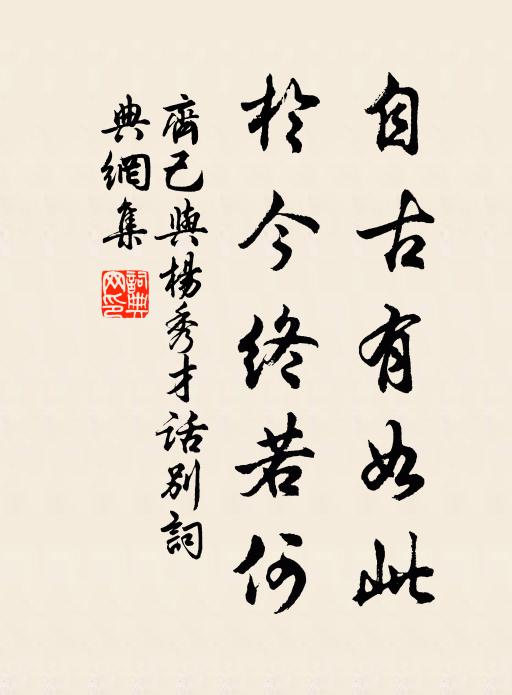 自古有如此
於今終若何
齊己與楊秀才话別詞
典網集
詞典网印